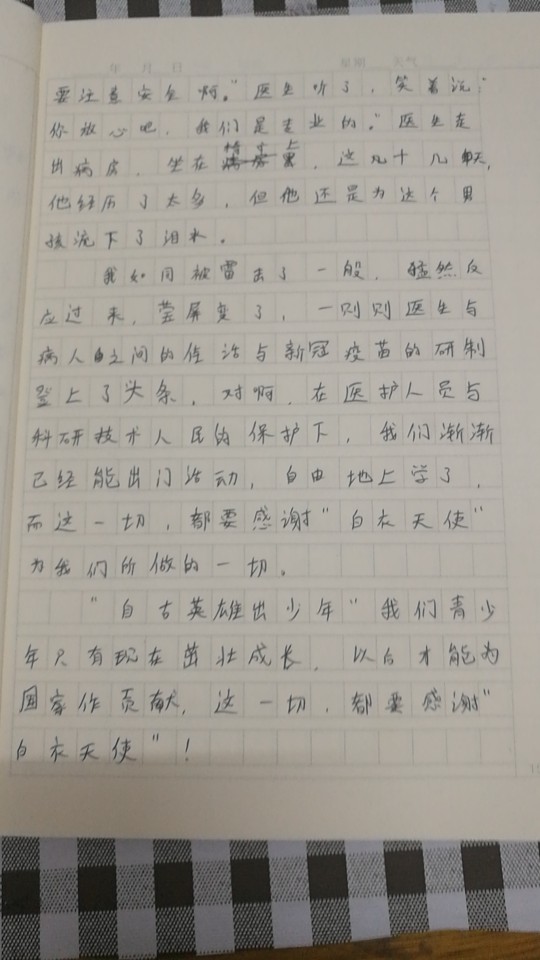 年 月 日 星期 天气
要注意安全啊。"医生听了，笑着说："
你放心吧，我们是专业的。"医生走
出病房，坐在椅子上，这几十几天，
他经历了太多，但他还是为这个男
孩流下了泪水。
我如同被雷击了一般，猛然反
应过来，莹屏变了，一则则医生与
病人之间的佳话与新冠疫苗的研制
登上了头条，对啊，在医护人员与
科研技术人民的保护下，我们渐渐
已经能出门活动，自由地上学了，
而这一切，都要感谢"白衣天使"
为我们所做的一切。
"自古英雄出少年"我们青少
年只有现在茁壮成长，以后才能为
国家作贡献，这一切，都要感谢"
白衣天使"！